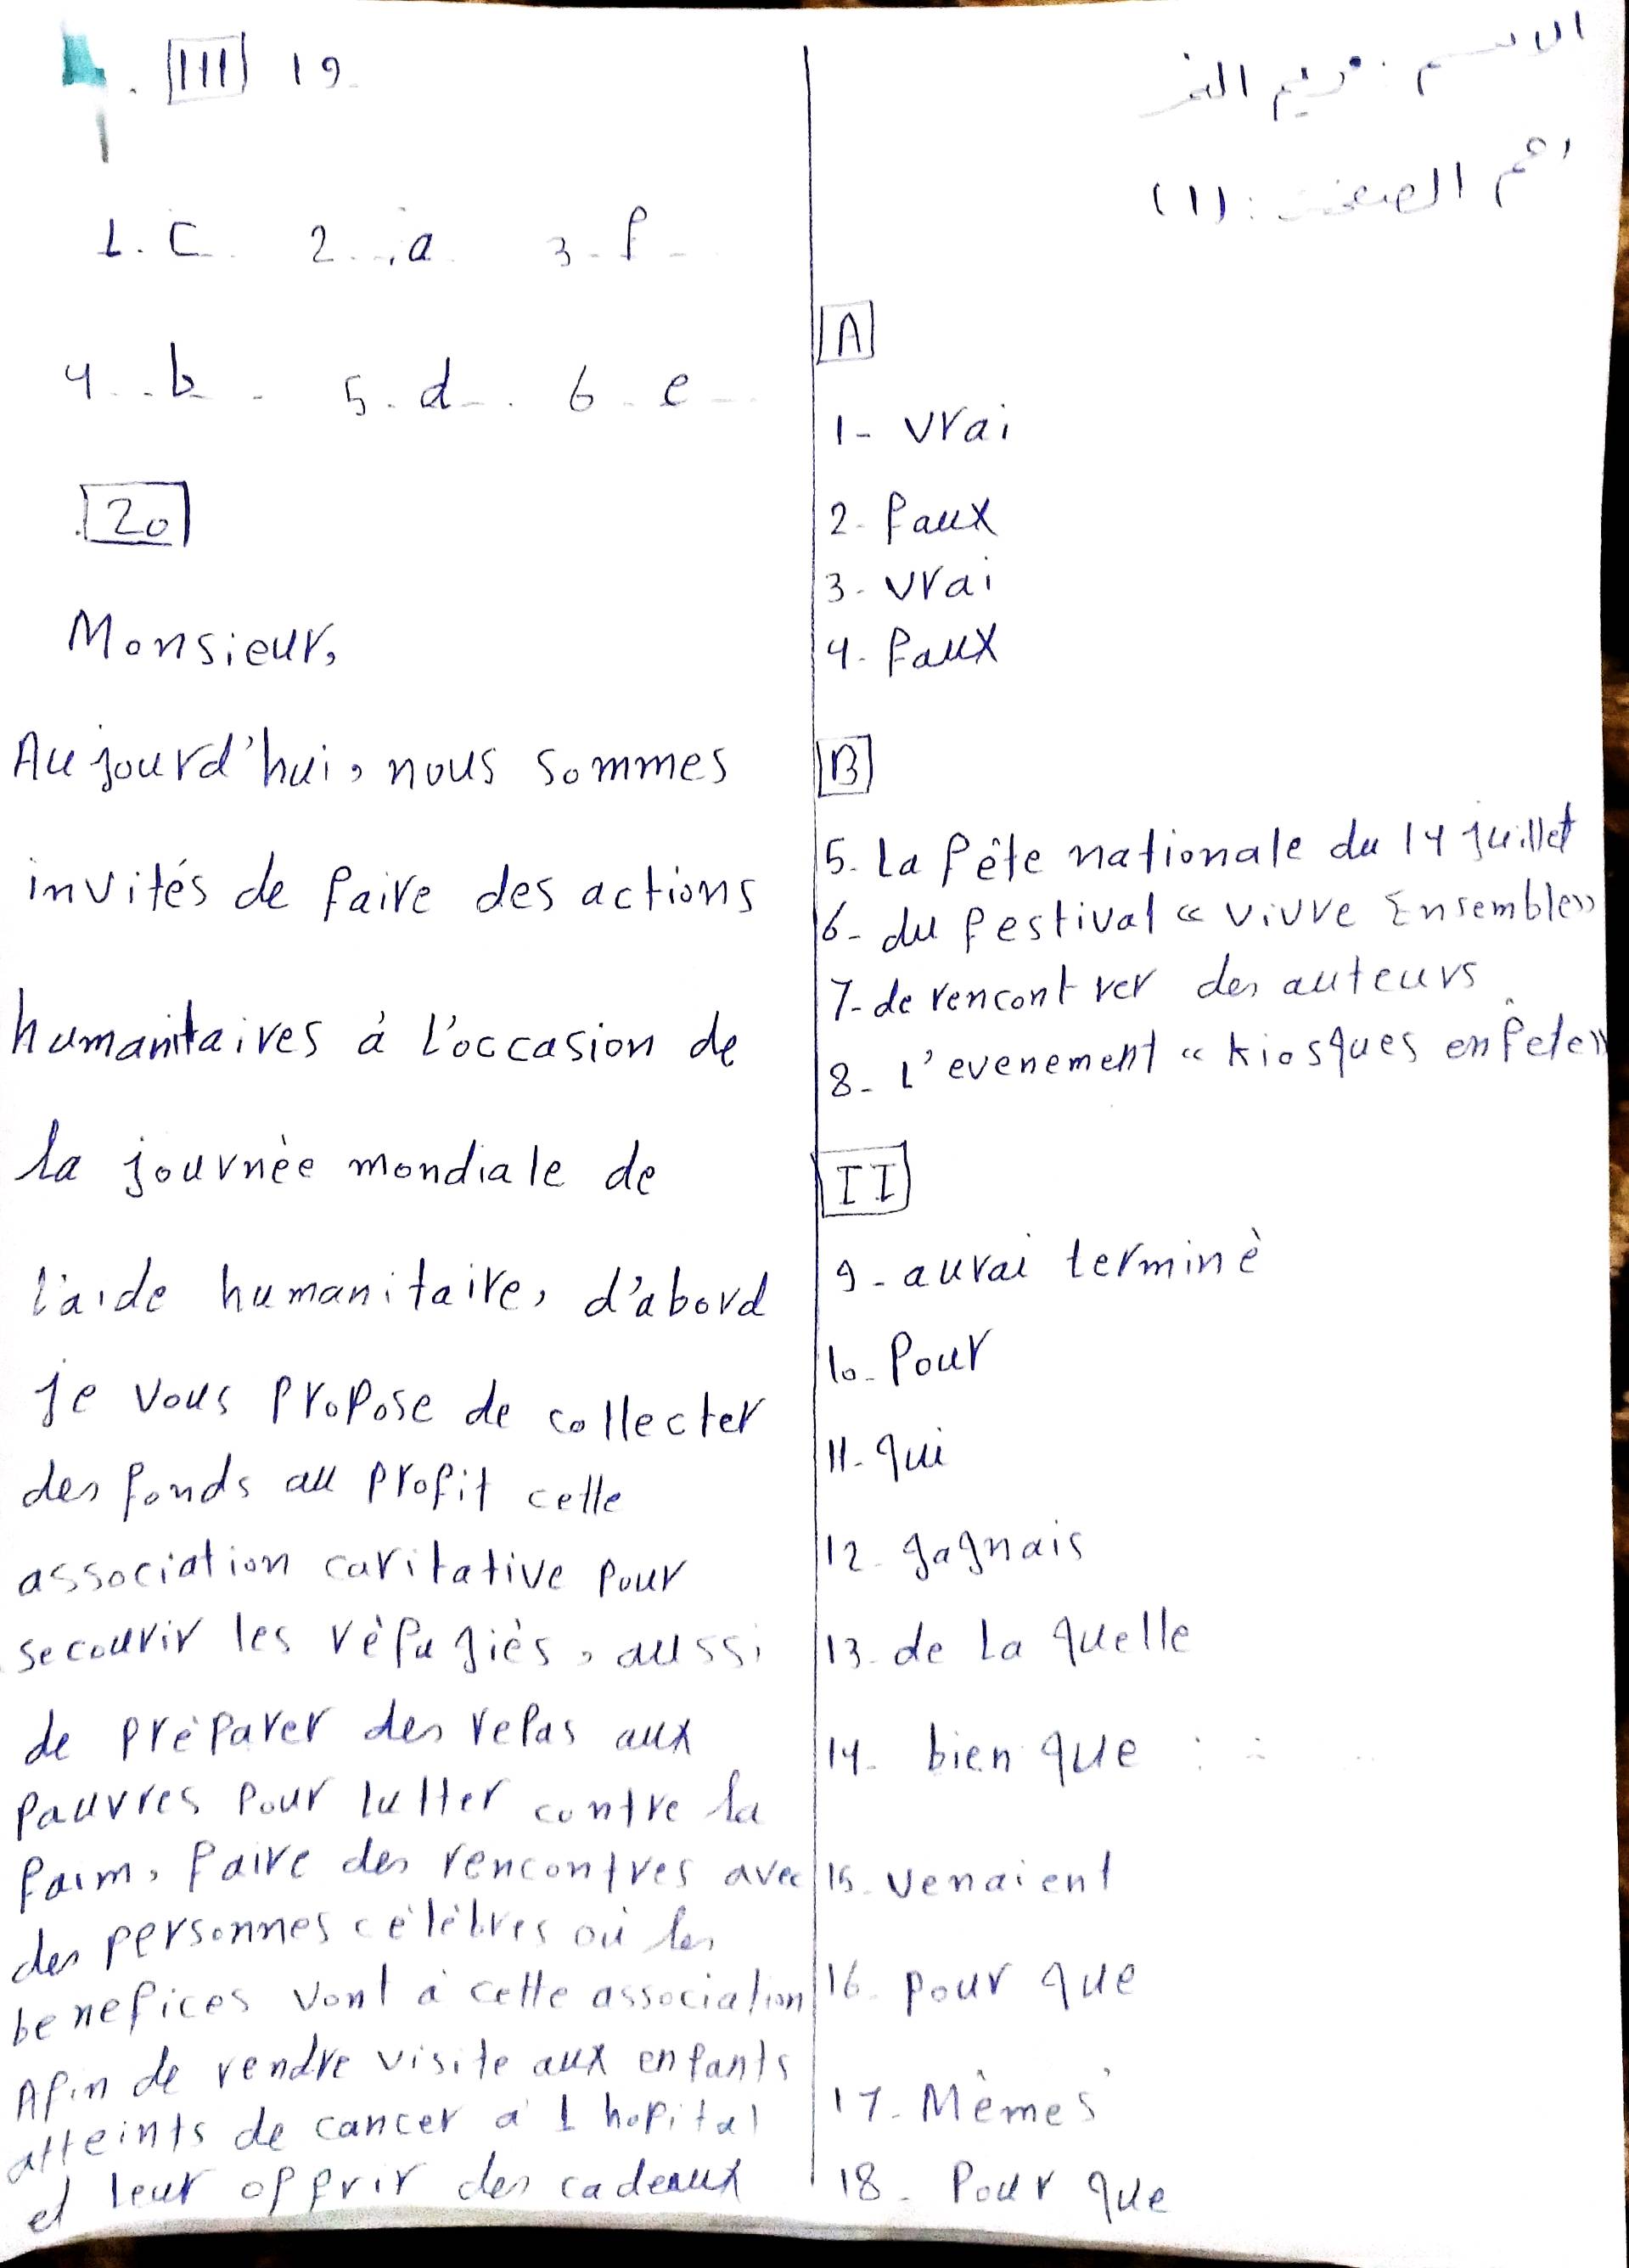 الاسم: مريم النمر
رقم الصفحة: (1)
A
1- vrai
2- faux
3- vrai
4- faux
B
5. La fête nationale du 14 juillet
6- du festival « vivre Ensemble»
7- de rencontrer des auteurs
8- L'evenement « kiosques en fete»
II
9- aurai terminè
10- Pour
11- qui
12- gagnais
13- de La quelle
14- bien que
15- venaient
16- pour que
17- Mêmes
18- Pour que
III 19
1. C 2. a 3- f
4. b 5. d 6- e
20
Monsieur,
Aujourd'hui, nous sommes
invités de faire des actions
humanitaires à l'occasion de
la journèe mondiale de
l'aide humanitaire, d'abord
je vous propose de collecter
des fonds au profit cette
association caritative pour
secourir les rèfugiès, aussi
de prèparer des repas aux
pauvres pour lutter contre la
faim, faire des rencontres avec
des personnes célèbres où les
benefices vont à cette association
Afin de rendre visite aux enfants
atteints de cancer à l hopital
et leur offrir des cadeaux